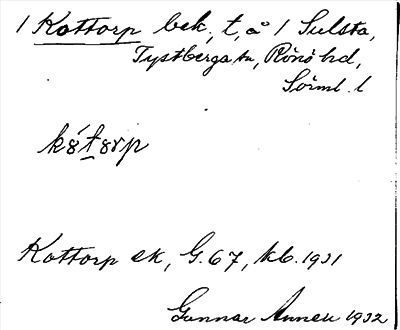 1 Kottorp bek, t, å 1 Sulsta,
Tystberga sn, Rönö hd,
Sörml. l
kó̀ttorp
Kottorp ek, G. 67, kb. 1931
Gunnar Annell 1932